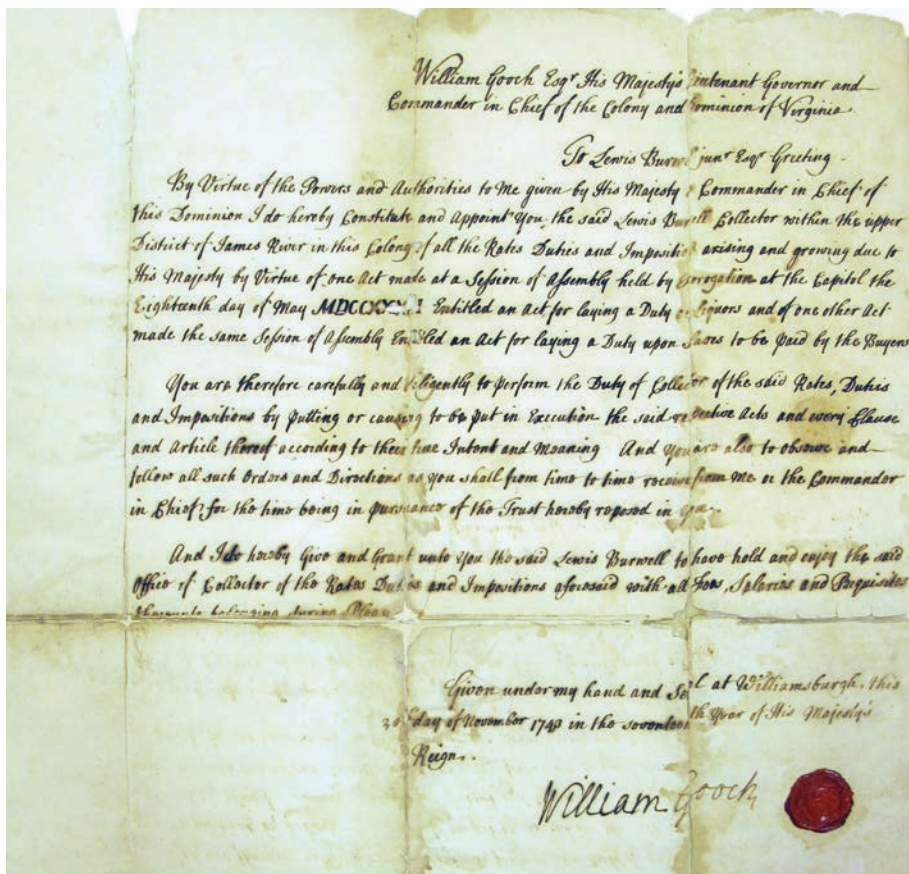 William Gooch Esqr. His Majesty's Lieutenant Governor and
Commander in Chief of the Colony and Dominion of Virginia.
To Lewis Burwell junr. Esqr. Greeting.
By Virtue of the Powers and Authorities to Me given by His Majesty Commander in Chief of
this Dominion I do hereby Constitute and Appoint You the said Lewis Burwell Collector within the upper
District of James River in this Colony of all the Rates Duties and Impositions arising and growing due to
His Majesty by Virtue of one Act made at a Session of Assembly held by prorogation at the Capitol the
Eighteenth day of May Entitled an Act for laying a Duty on liquors and of one other Act
made the same Session of Assembly Entitled an Act for laying a Duty upon Slaves to be paid by the Buyers
You are therefore carefully and diligently to perform the Duty of Collector of the said Rates, Duties
and Impositions by putting or causing to be put in Execution the said respective Acts and every Clause
and Article thereof according to their true Intent and Meaning And You are also to observe and
follow all such Orders and Directions as you shall from time to time receive from Me or the Commander
in Chief for the time being in pursuance of the Trust hereby reposed in you.
And I do hereby Give and Grant unto You the said Lewis Burwell to have hold and enjoy the said
Office of Collector of the Rates Duties and Impositions aforesaid with all Fees, Salaries and Perquisites
thereunto belonging during
Given under my hand and Seal at Williamsburgh, this
day of November 1743 in the seventeenth Year of His Majesty's
Reign.
William Gooch